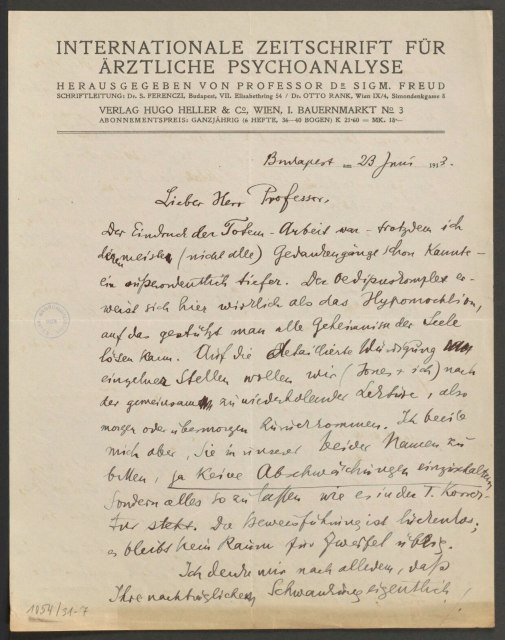 INTERNATIONALE ZEITSCHRIFT FÜR
ÄRZTLICHE PSYCHOANALYSE
HERAUSGEGEBEN VON PROFESSOR DR SIGM. FREUD
SCHRIFTLEITUNG: Dr. S. FERENCZI, Budapest, VII. Elisabethring 54 / Dr. OTTO RANK, Wien IX/4, Simondenkgasse 8
VERLAG HUGO HELLER & Co, WIEN, I. BAUERNMARKT No 3
ABONNEMENTSPREIS: GANZJÄHRIG (6 HEFTE, 36—40 BOGEN) K 21·60 = MK. 18·—
Budapest am 23 Juni 1913.
Lieber Herr Professor,
Der Eindruck der Totem-Arbeit war – trotzdem ich
deren meisten (nicht alle) Gedankengänge schon kannte –
ein außerordentlich tiefer. Der Oedipuskomplex er-
weist sich hier wirklich als das Hypomochlion,
auf das gestützt man alle Geheimnisse der Seele
lösen kann. Auf die detaillierte Würdigung
einzelner Stellen wollen wir (Jones + ich) nach
der gemeinsam zu wiederholender Lektüre, also
morgen oder übermorgen zurückkommen. Ich beeile
mich aber, Sie in unser beider Namen zu
bitten, ja keine Abschwächungen einzuschalten,
sondern alles so zu laßen wie es in der I. Korrek-
tur steht. Die Beweisführung ist lückenlos;
es bleibt kein Raum für Zweifel übrig.
Ich denke mir nach alledem, daß
Ihre nachträglichen Schwankung eigentlich
1954/31-7